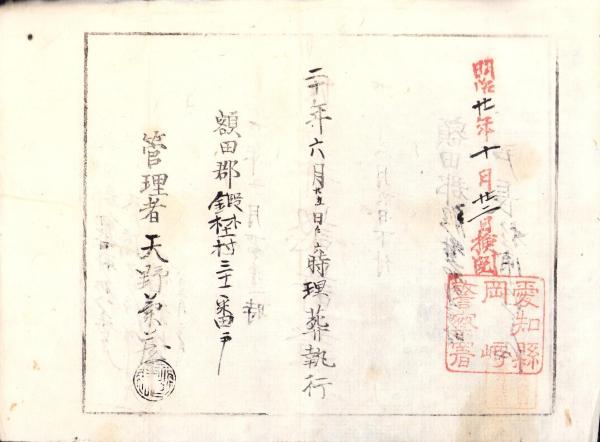 明治廿年十月廿 日検閲
愛知縣
岡崎
警察署
二十年六月廿五日午 六時埋葬執行
額田郡鍛埜村三十二番戸
管理者 天野